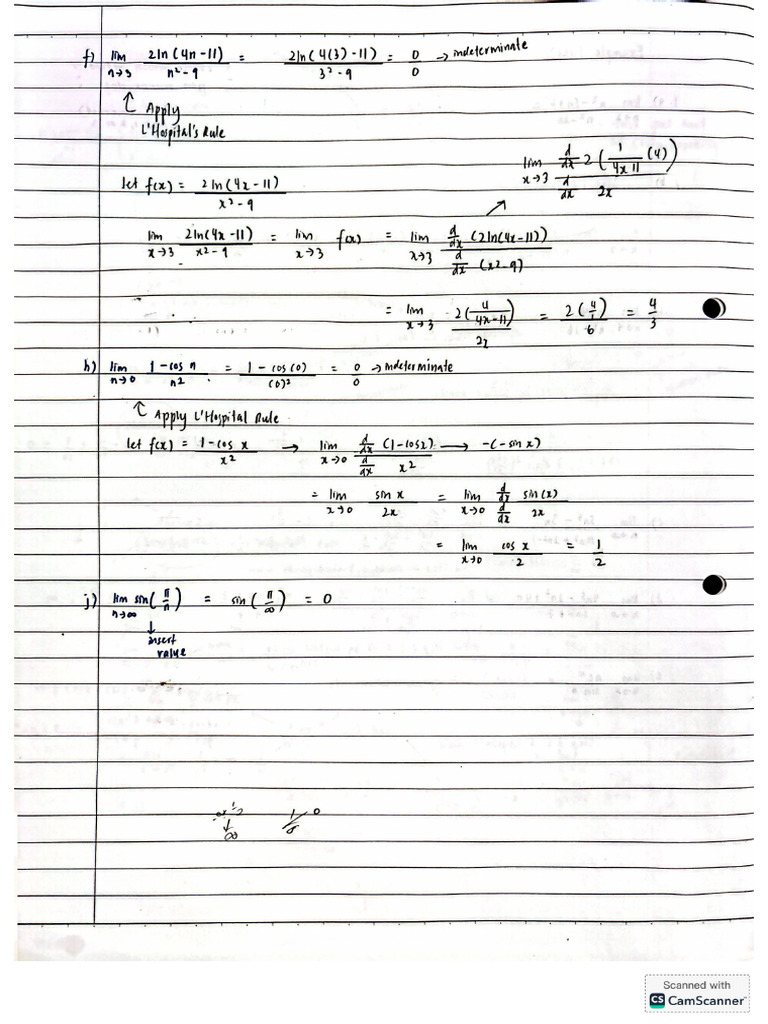 f) lim n→3 2ln(4n-11) / n² - 9 = 2ln(4(3)-11) / 3² - 9 = 0/0 → indeterminate
↑ Apply
L'Hospital's Rule
lim x→3 d/dx 2(1/4x-11 (4)) / d/dx 2x
let f(x) = 2ln(4x-11) / x² - 9
lim x→3 2ln(4x-11) / x² - 9 = lim x→3 f(x) = lim x→3 d/dx (2ln(4x-11)) / d/dx (x²-9)
= lim x→3 2(4/4x-11) / 2x = 2(4/1) / 6 = 4/3
h) lim n→0 1-cos n / n² = 1-cos(0) / (0)² = 0/0 → indeterminate
↑ Apply L'Hospital Rule
let f(x) = 1-cos x / x² → lim x→0 d/dx (1-cosx) / d/dx x² → -(-sin x)
= lim x→0 sin x / 2x = lim x→0 d/dx sin(x) / d/dx 2x
= lim x→0 cos x / 2 = 1/2
j) lim n→∞ sin(π/n) = sin(π/∞) = 0
↓
insert
value
Scanned with
CS CamScanner